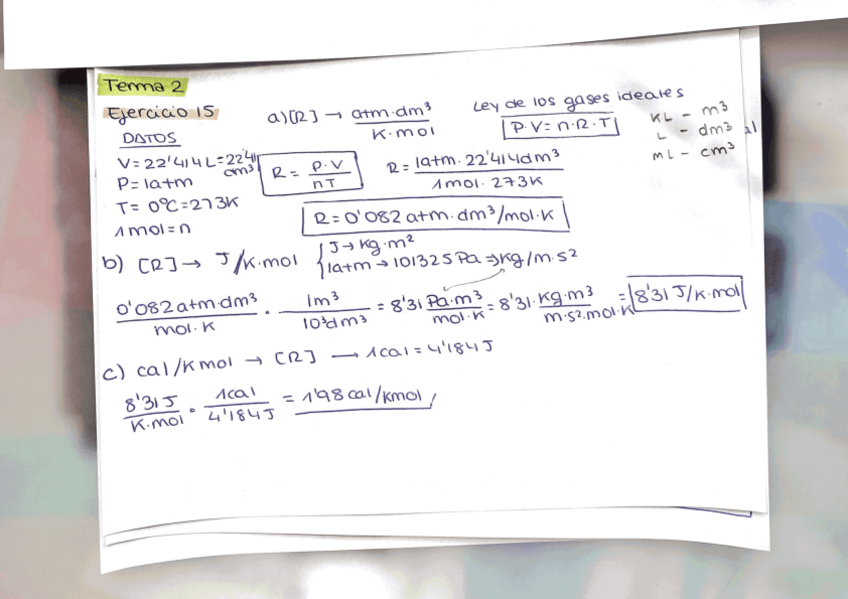 Tema 2
Ejercicio 15
DATOS
V = 22'414 L = 22'41 dm³
P = 1atm
T = 0ºC = 273K
1 mol = n
a) [R] → atm·dm³ / K·mol
Ley de los gases ideales
P·V = n·R·T
KL - m³
L - dm³
mL - cm³
al
R = P·V / nT
R = 1atm · 22'414dm³ / 1mol · 273K
R = 0'082 atm·dm³/mol·K
b) [R] → J/K·mol
J → kg·m²
1atm → 101325 Pa ⇒ kg/m·s²
0'082 atm·dm³ / mol·K · 1m³ / 10³dm³ = 8'31 Pa·m³ / mol·K = 8'31 · kg·m³ / m·s²·mol·K = 8'31 J/K·mol
c) cal/Kmol → [R] → 1cal = 4'184J
8'31 J / K·mol · 1cal / 4'184J = 1'98 cal/Kmol